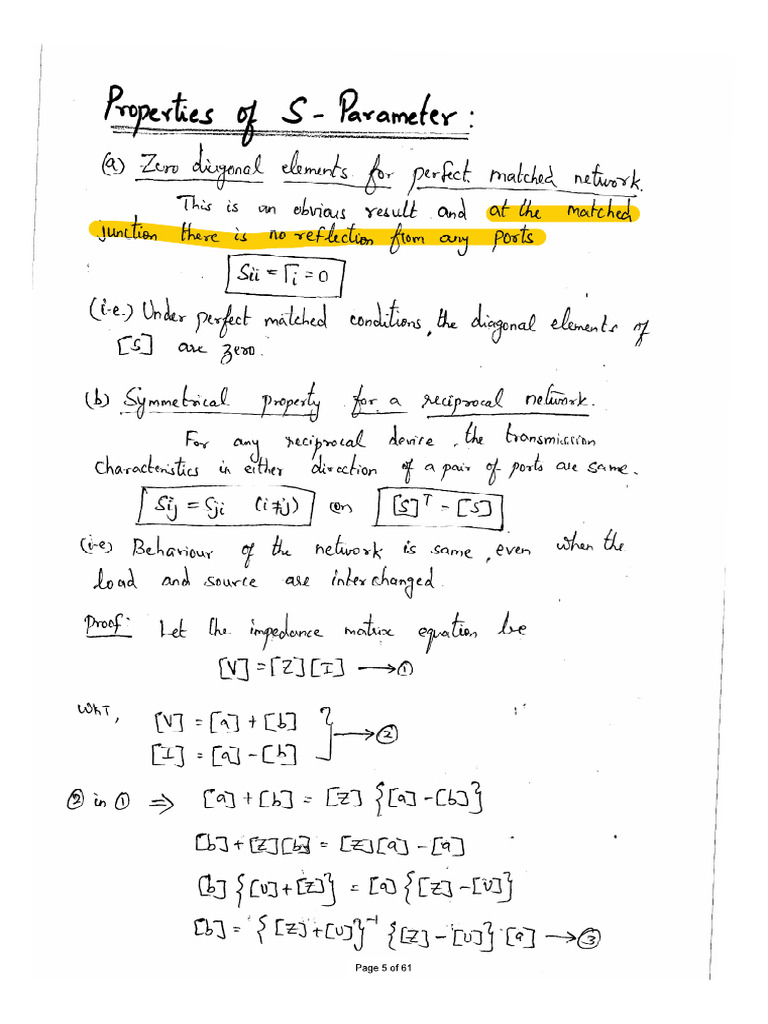 Properties of S-Parameter:
(a) Zero diagonal elements for perfect matched network.
This is an obvious result and at the matched
junction there is no reflection from any ports
Sii = Γi = 0
(i.e.) Under perfect matched conditions, the diagonal elements of
[S] are zero.
(b) Symmetrical property for a reciprocal network.
For any reciprocal device, the transmission
characteristics in either direction of a pair of ports are same.
Sij = Sji (i≠j) (or) [S]ᵀ = [S]
(i.e) Behaviour of the network is same, even when the
load and source are interchanged.
Proof: Let the impedance matrix equation be
[V] = [Z][I] → ①
WKT,
[V] = [a] + [b]
[I] = [a] - [b] → ②
② in ① ⇒ [a] + [b] = [Z] {[a] - [b]}
[b] + [Z][b] = [Z][a] - [a]
[b] {[U] + [Z]} = [a] {[Z] - [U]}
[b] = {[Z] + [U]}⁻¹ {[Z] - [U]} [a] → ③
Page 5 of 61